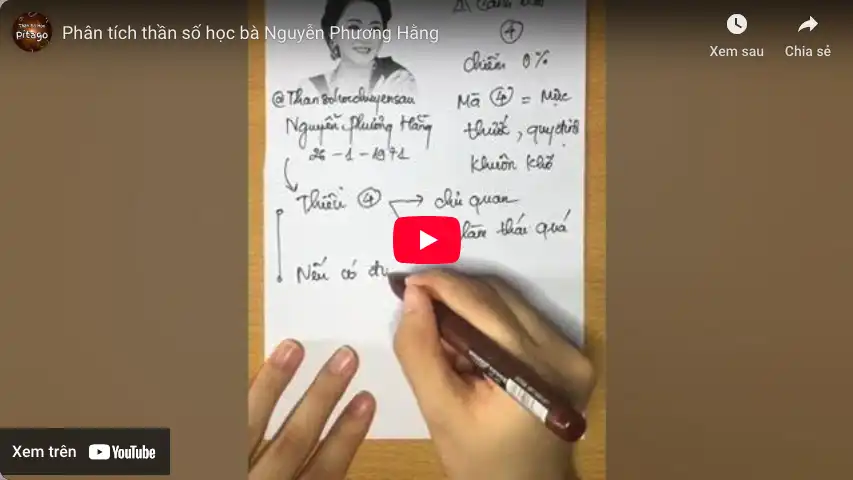 Thần Số Học
Pitago
Phân tích thần số học bà Nguyễn Phương Hằng
Xem sau
Chia sẻ
4
chiếm 0%
Mã 4 = Mực
thước, quy định
khuôn khổ
@Thansohocchuyensau
Nguyễn Phương Hằng
26-1-1971
Thiếu 4
chủ quan
làm thái quá
Nếu có
Xem trên
YouTube